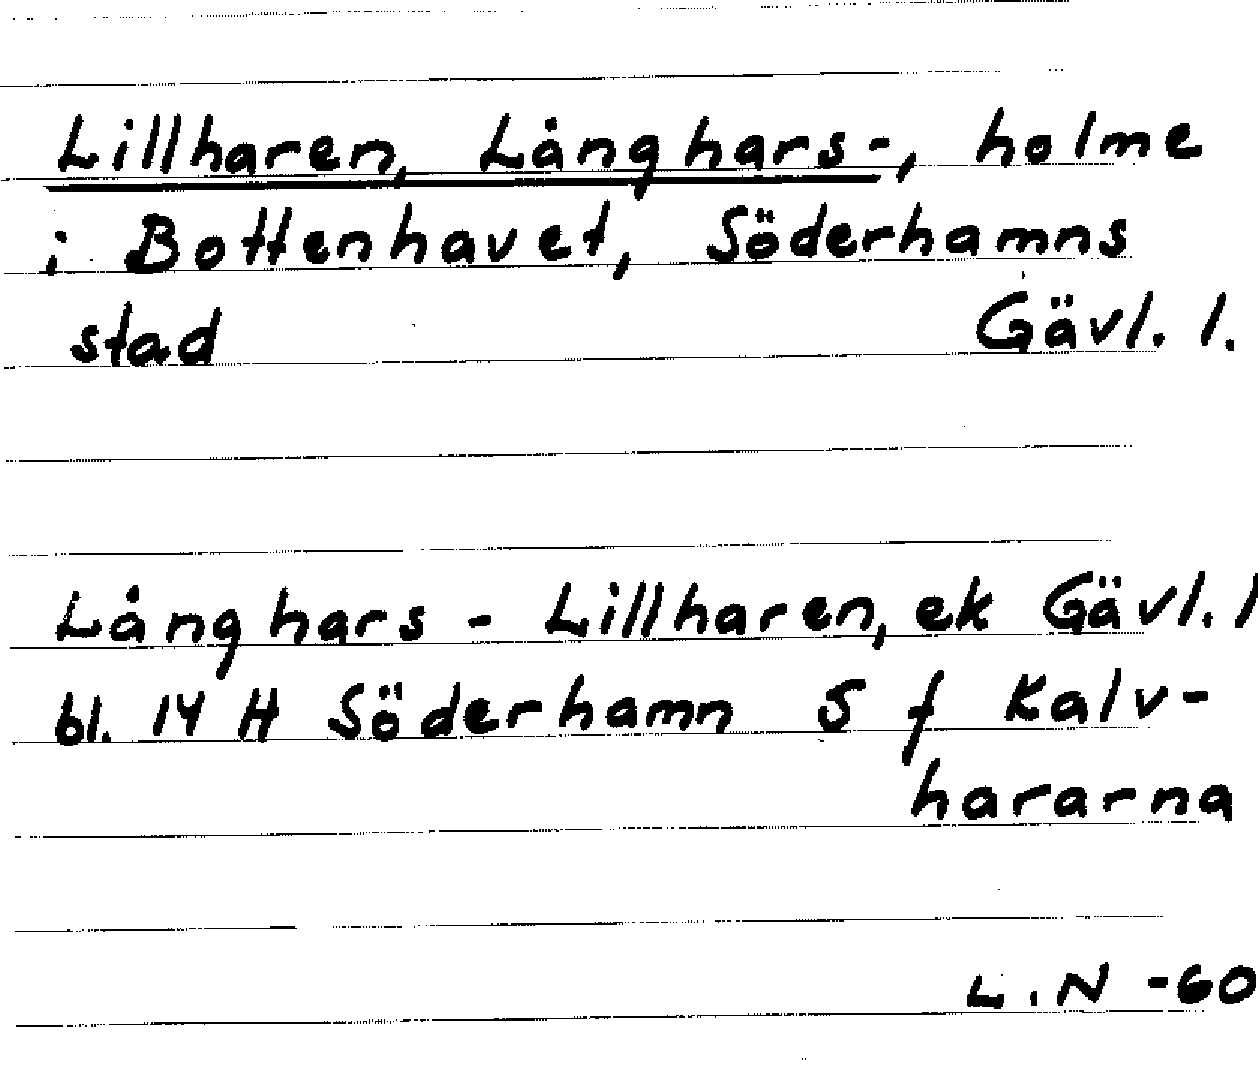 Lillharen, Långhars-, holme
i Bottenhavet, Söderhamns
stad Gävl. l.
Långhars - Lillharen, ek Gävl. l
bl. 14 H Söderhamn S f Kalv-
hararna
L.N -60